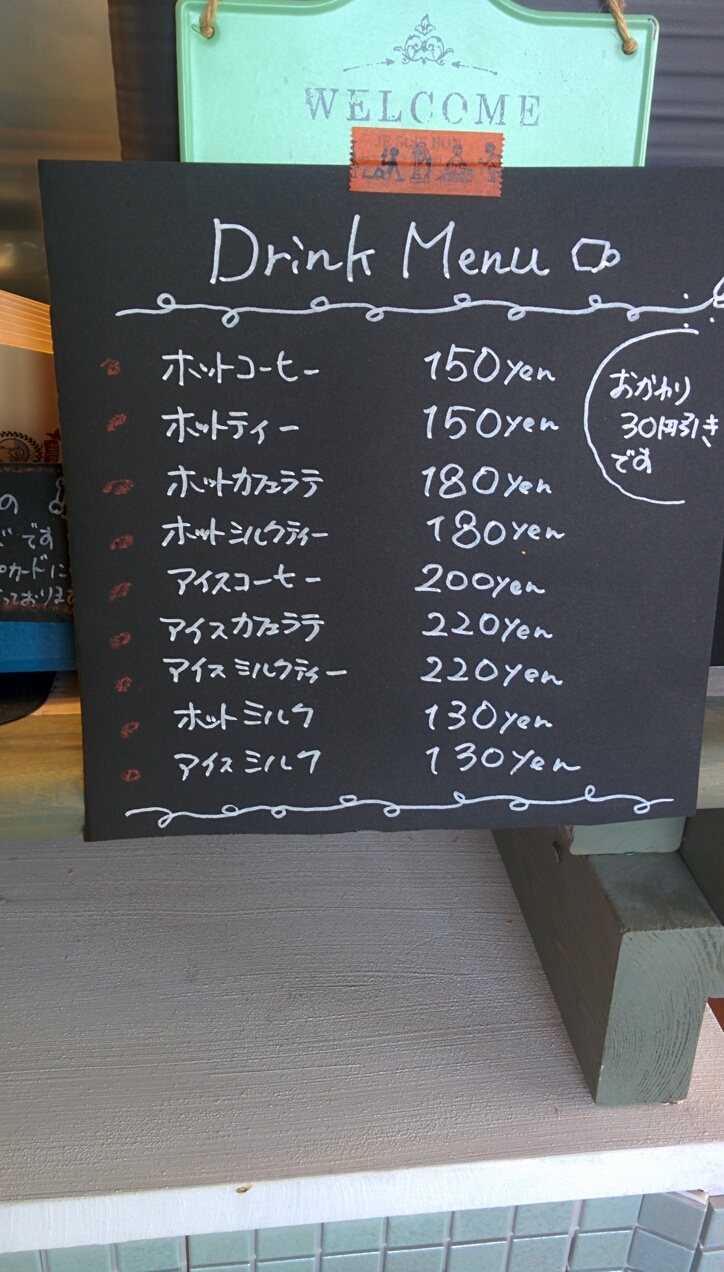 WELCOME
Drink Menu
ホットコーヒー 150yen
ホットティー 150yen
ホットカフェラテ 180yen
ホットミルクティー 180yen
アイスコーヒー 200yen
アイスカフェラテ 220yen
アイスミルクティー 220yen
ホットミルク 130yen
アイスミルク 130yen
おかわり
30円引き
です
の
です
カードに
っております